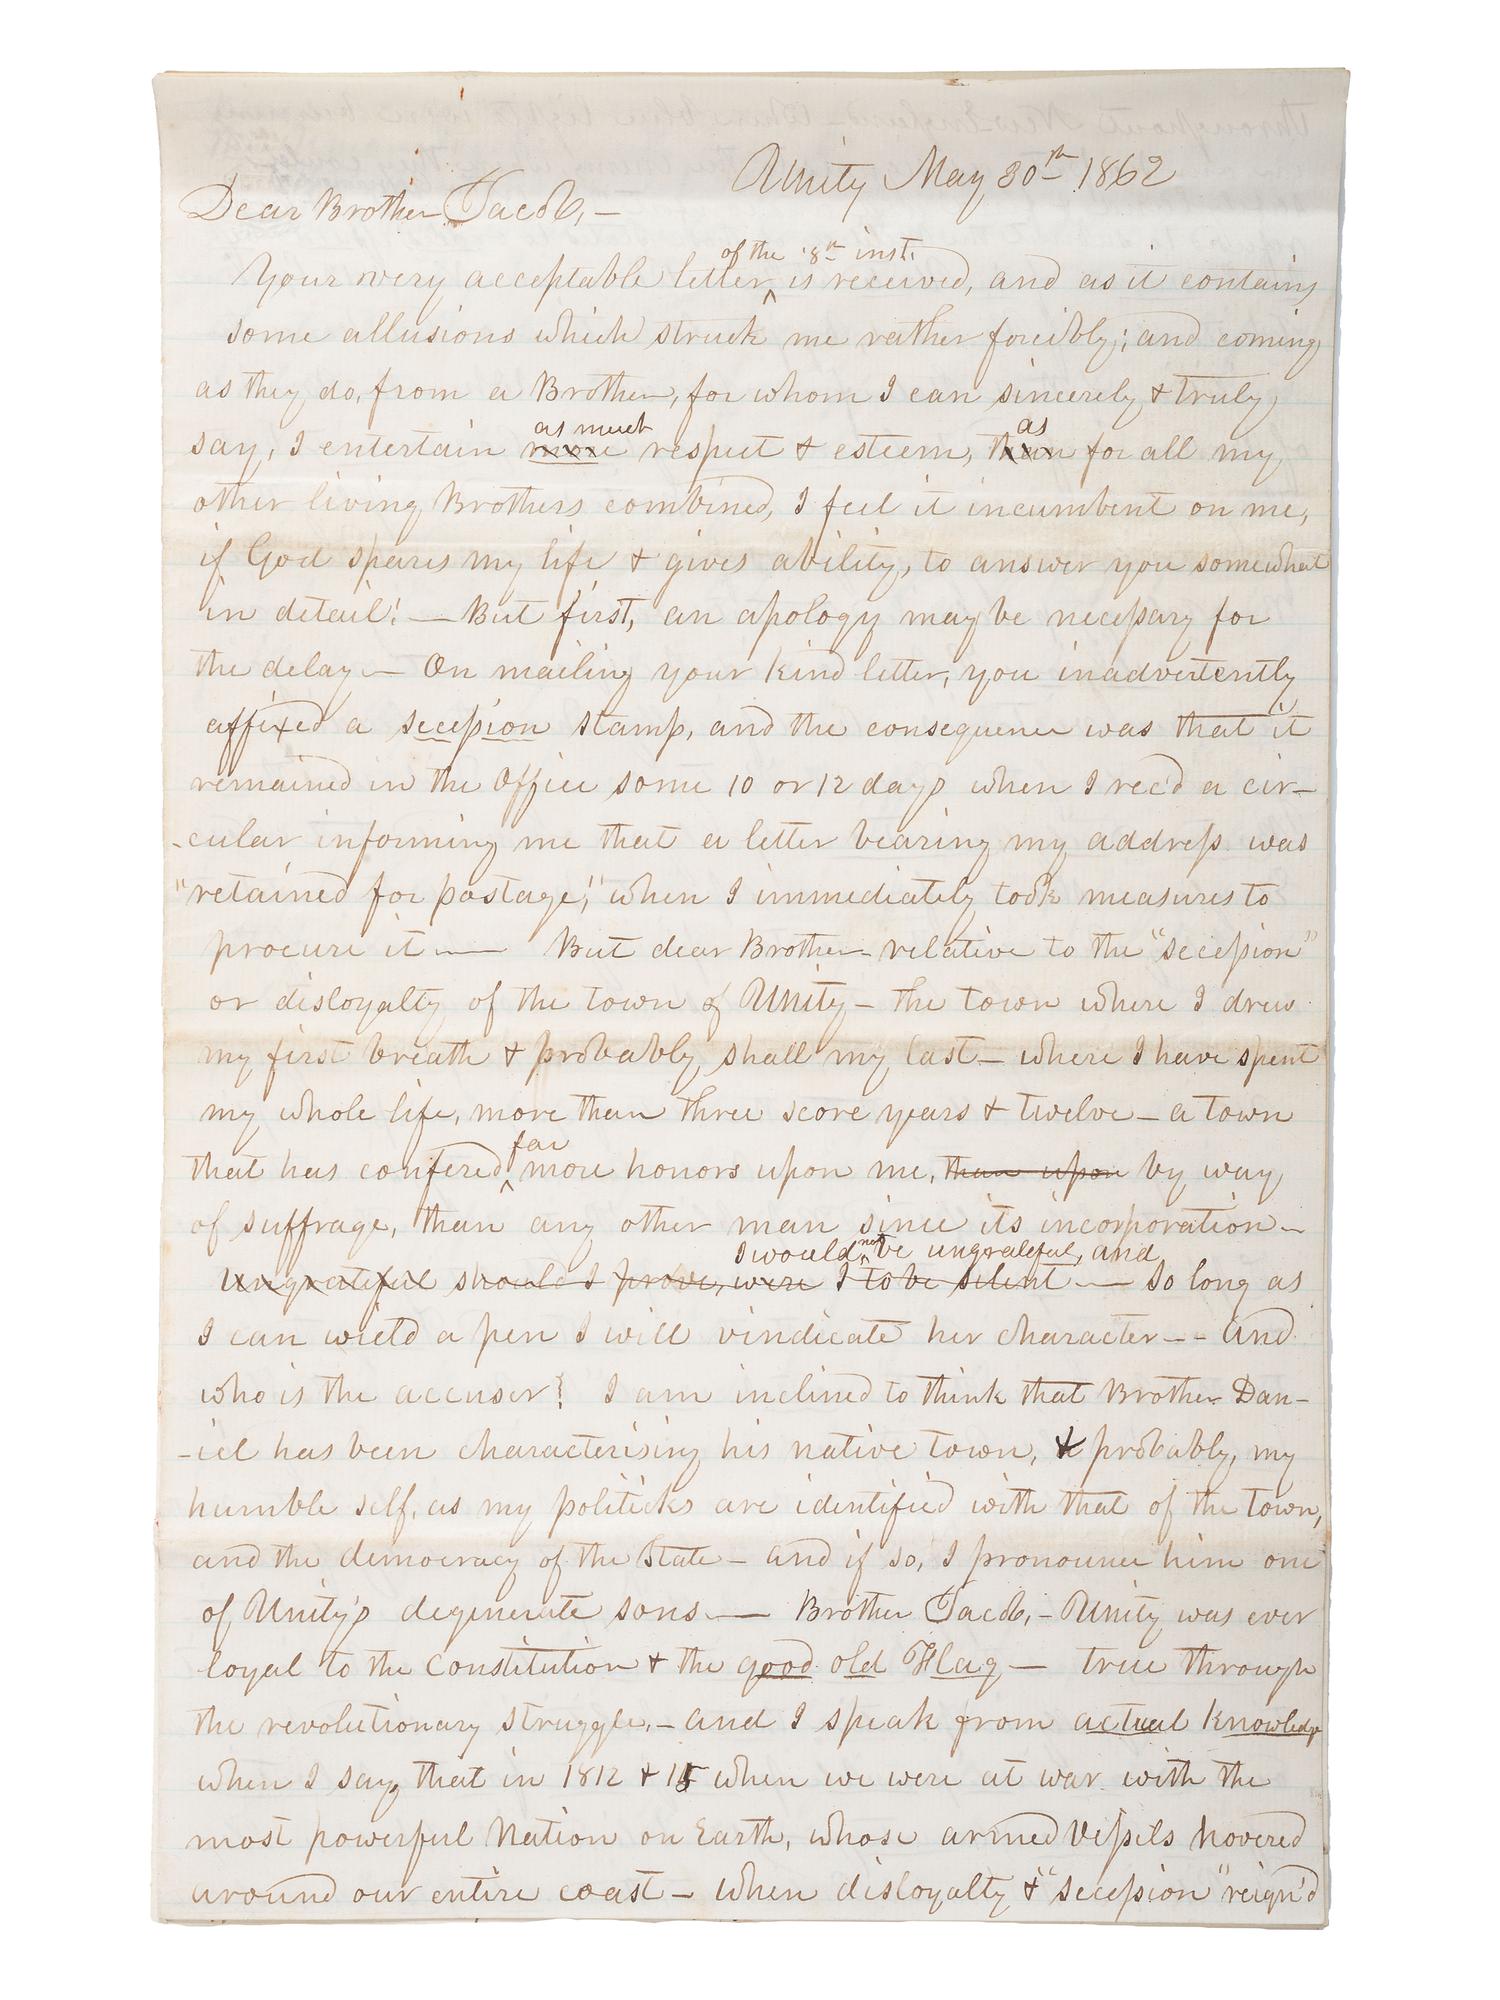 Unity May 30th 1862
Dear Brother Jacob,—
of the 18th inst.
Your very acceptable letter ^ is received, and as it contains
some allusions which struck me rather forcibly; and coming
as they do, from a Brother, for whom I can sincerely & truly
as much as
say, I entertain more respect & esteem, than for all my
other living Brothers combined, I feel it incumbent on me,
if God spares my life & gives ability, to answer you somewhat
in detail! — But first, an apology may be necessary for
the delay — On mailing your kind letter, you inadvertently
affixed a secession stamp, and the consequence was that it
remained in the Office some 10 or 12 days when I rec'd a cir-
-cular informing me that a letter bearing my address was
"retained for postage," when I immediately took measures to
procure it — But dear Brother relative to the "secession"
or disloyalty of the town of Unity — the town where I drew
my first breath & probably shall my last — where I have spent
my whole life, more than three score years & twelve — a town
far
that has confered ^ more honors upon me, than upon by way
of suffrage, than any other man since its incorporation —
I would ^ not be ungrateful, and
ungrateful should I prove, were I to be silent — so long as
I can wield a pen I will vindicate her character -- and
who is the accuser? I am inclined to think that Brother Dan-
-iel has been characterising his native town, & probably, my
humble self, as my politicks are identified with that of the town,
and the democracy of the State — and if so, I pronounce him one
of Unity's degenerate sons — Brother Jacob, — Unity was ever
loyal to the Constitution & the good old Flag — true through
the revolutionary struggle, — and I speak from actual knowledge
when I say, that in 1812 & 15 when we were at war with the
most powerful Nation on Earth, whose armed Vessels hovered
around our entire coast — when disloyalty & "secession" reign'd